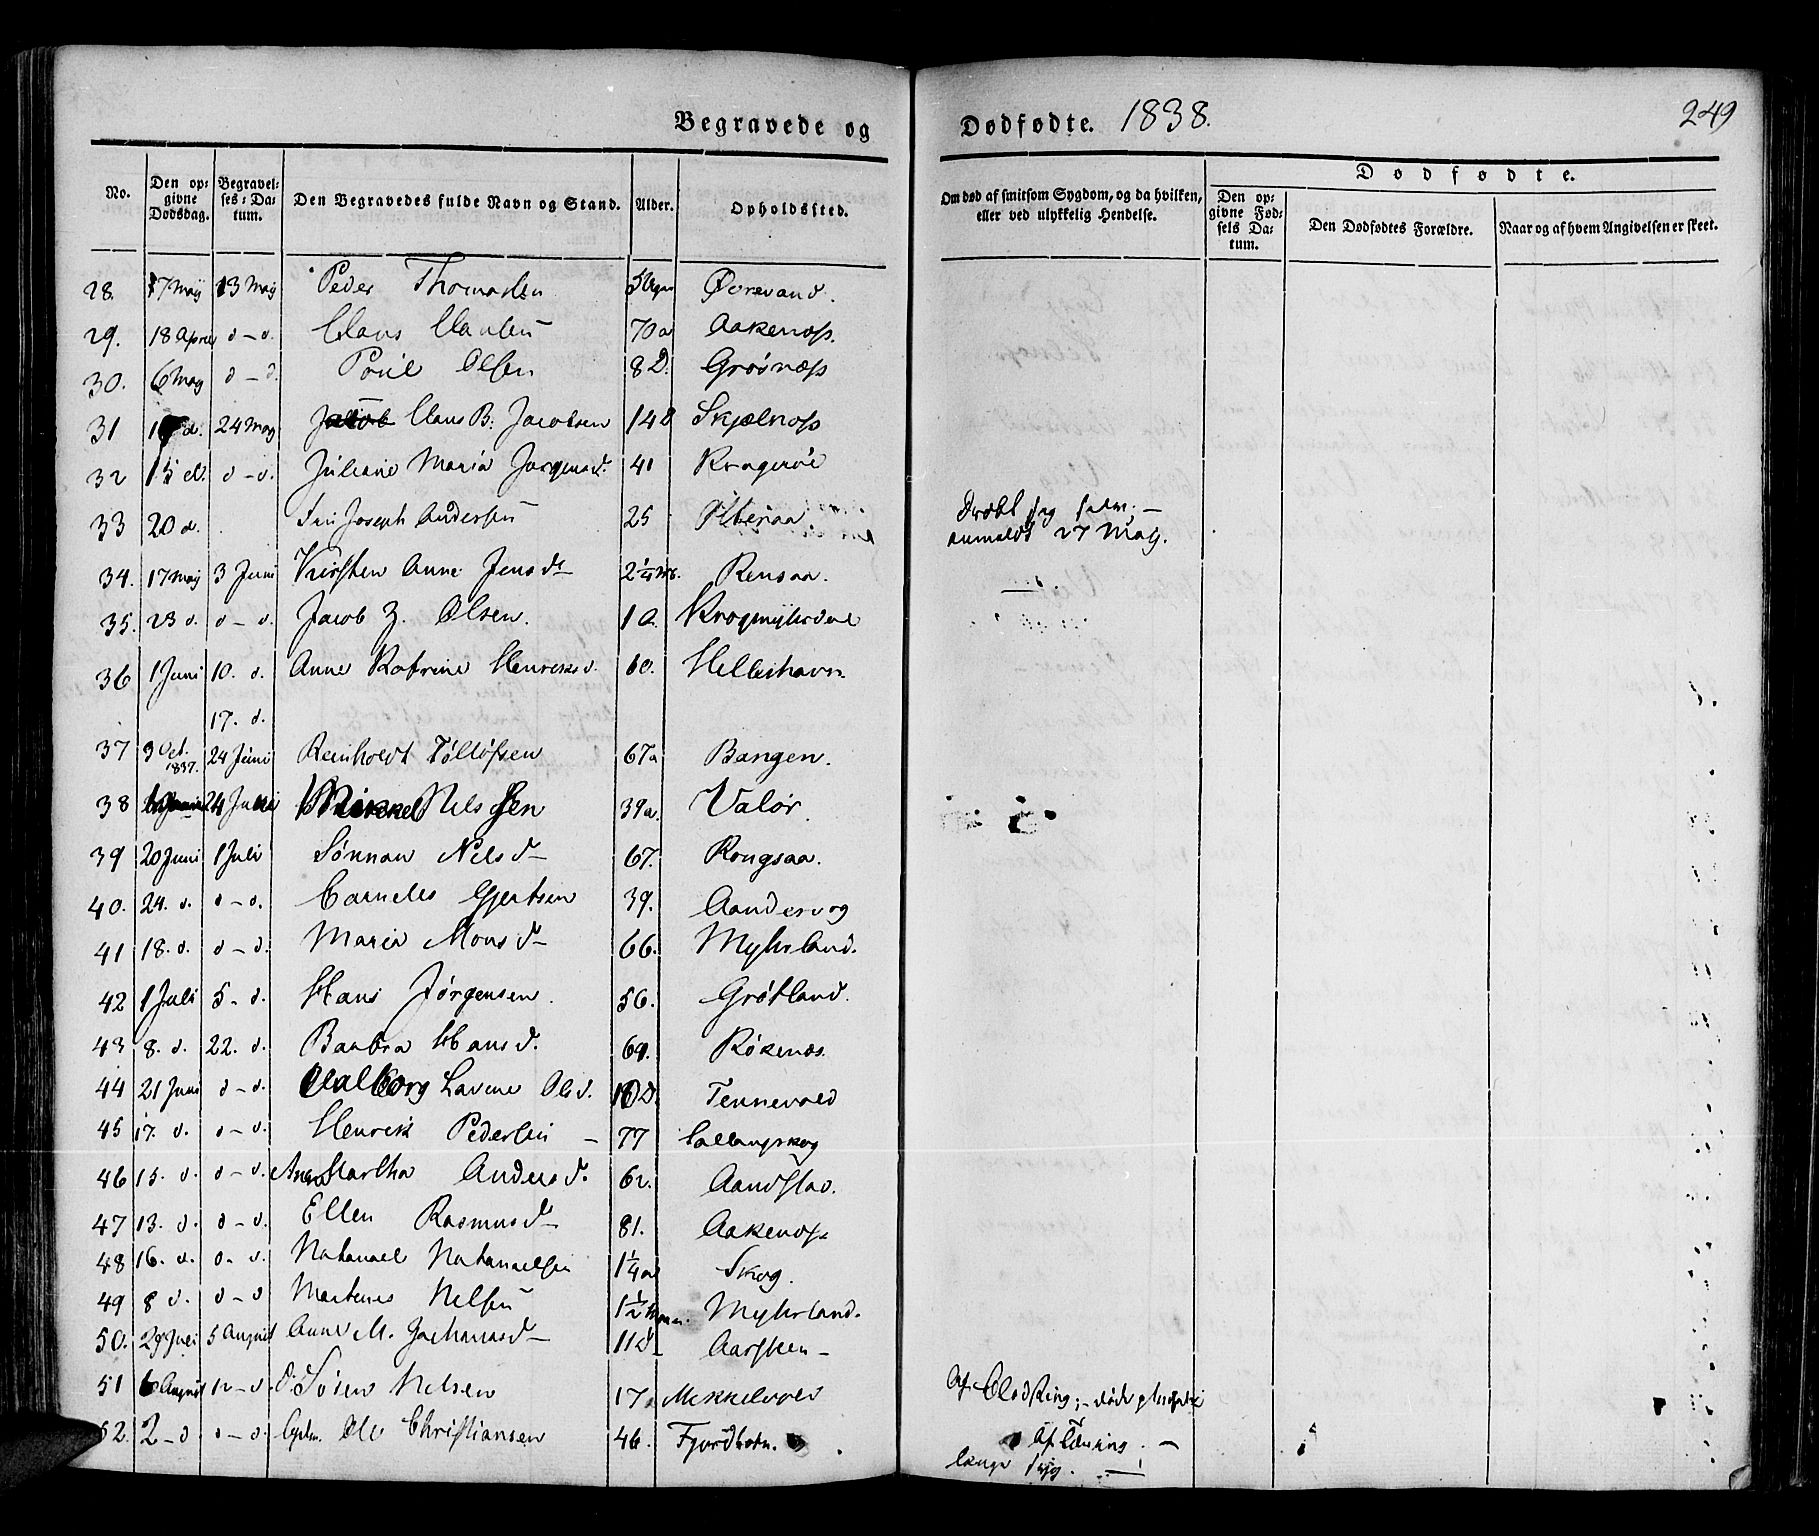 Begravede og Dødfødte. 1838. 249
No. Den opgivne Dødsdag. Begravelses-Datum. Den Begravedes fulde Navn og Stand. Alder. Opholdssted. Om død af smitsom Sygdom, og da hvilken, eller ved ulykkelig Hendelse. Dødfødte. Den opgivne Fødsels Datum. Den Dødfødtes Forældre. Naar og af hvem Angivelsen er skeet.
28. 7 Maij 13 Maij Peder Thomassen Øvrevand.
29. 18 April d-d. Claus Clausen 70 a Aakenæss.
30. 6 May d-d. Povel Olsen 8 D. Grøsnæss
31 d. 24 May Claus B. Jacobsen 14 D Skjelnæss
32 15 d. d-d. Juliane Maria Jørgensd. 41 Kragerøe
33 20 d. Joseph Andersen 25 Dræbt sig selv. -
anmeldt 27 Maij.
34. 17 Maij 3 Juni Kirsten Anne Jensd 2 1/4 Rensaa.
35. 23 d. d-d. Jacob Z. Olsen. 1 a. Krogmyhrdal
36 1 Juni 10. d. Anne Katrine Henriksd. 60. Helleshavn.
17. d.
37 3 Oct. 1837. 24 Juni Reinholdt Tølløfsen 67 a Bangen.
38 24 Juni Mikkel Nilssen 39 a. Valør.
39 20 Juni 1 Juli Sønnau Nelsd 67. Rongsaa.
40. 24. d. d-d. Cornelis Gjertsen 39. Aandervog
41 18. d. d-d. Maria Monsd 66. Myhrland.
42 1 Juli 5-d. Hans Jørgensen. 56. Grøtland.
43 8. d. 22. d. Barbra Hansd. 69. Røkenæs.
44 21 Juni d-d. Aalborg Lavine Olsd. 10 D. Tennevold
45 17. d. d-d. Henrik Pedersen - 77 Callangskog
46 15. d. d-d. Anne Martha Andersd. 62. Aandstad.
47 13. d. d-d. Ellen Rasmusd 81. Aakenæss
48 16. d. d. d. Nathanael Nathanaelsen 1 1/4 a Skog.
49 8 d. d-d Martenes Nelsen 1 1/2 Myhrland.
50. 29 Juli 5 August Anne M. Zachariasd 11 D Aarsteen -
51 6 August 12-d. Søren Nelsen 17 a Mekkelvold Af Blodsting; - døde
52. 2-d d-d. Ole Christiansen 46. Fjordbotn. Af Tæring. -
lange syg. -